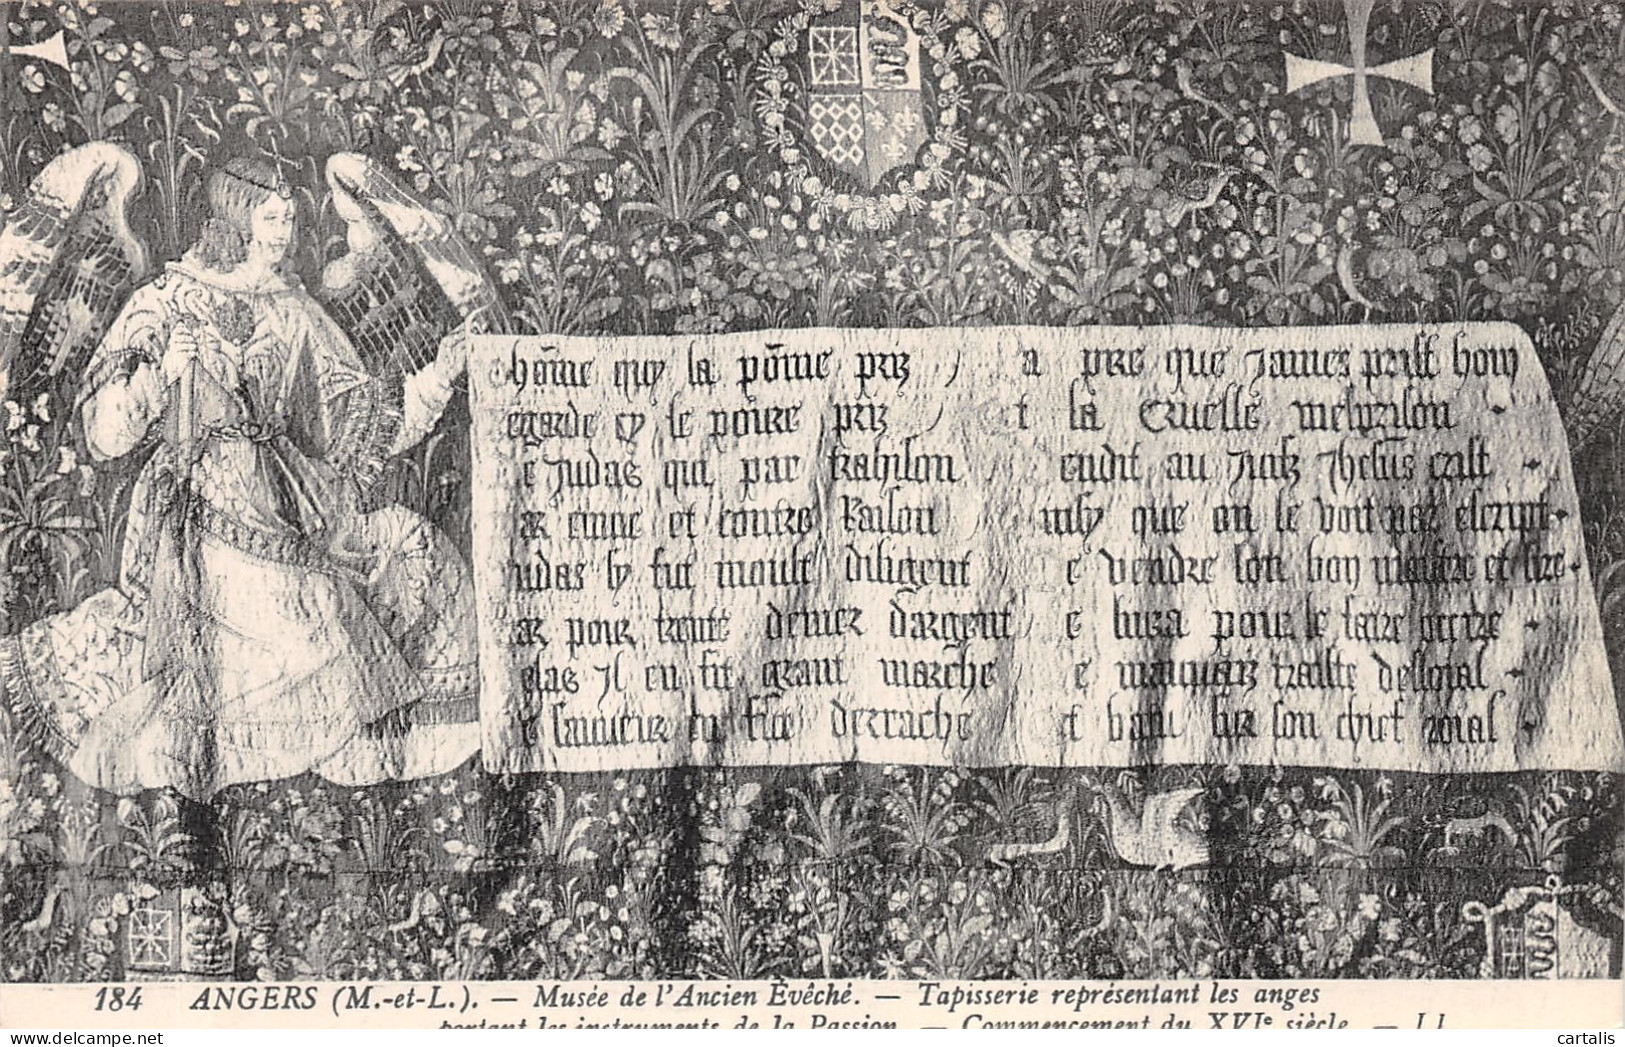 hõme quy la põme priz a pire que James prist hom
egarde cy le poure priz t la cruelle mesprison
e Judas qui par trahison endit au Juifz Jhesus crist
ar enuie et contre Raison insy que on le voit par escript
udas sy fut moult diligent e vendre son bon maistre et sire
ar pour trente denier dargent e liura pour le faire occire
elas Jl en fit grant marche e mauuaiz traistre desloial
e sauueur en fut derrache t baisi sur son chief roial
184 ANGERS (M.-et-L.). — Musée de l'Ancien Évêché. — Tapisserie représentant les anges
portant les instruments de la Passion. — Commencement du XVIe siècle. — LL
cartalis